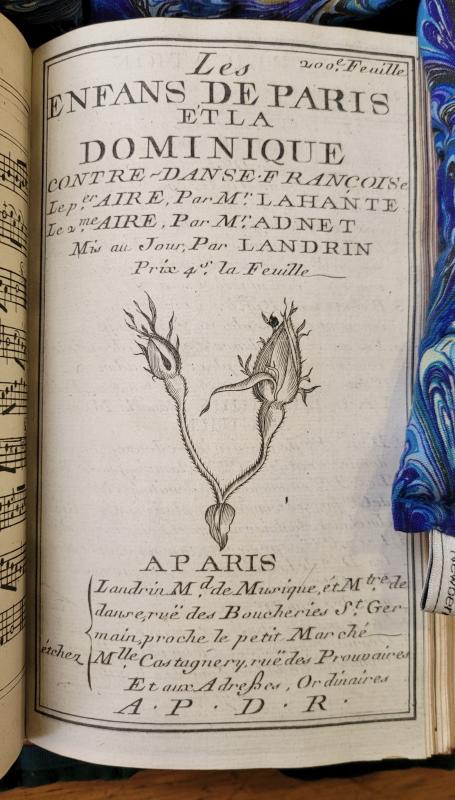 Les 200e. Feuille
ENFANS DE PARIS
ET LA
DOMINIQUE
CONTRE-DANSE FRANÇOISe
Le pr.er AIRE, Par Mr. LAHANTE
Le 2.me AIRE, Par Mr. ADNET
Mis au Jour, Par LANDRIN
Prix 4s. la Feuille
APARIS
Landrin Md. de Musique, ét Mtre de
danse, ruë des Boucheries St. Ger-
main, proche le petit Marché
étchez Mlle Castagnery, ruë des Prouvaires
Et aux Adreßes, Ordinaires
A. P. D. R.